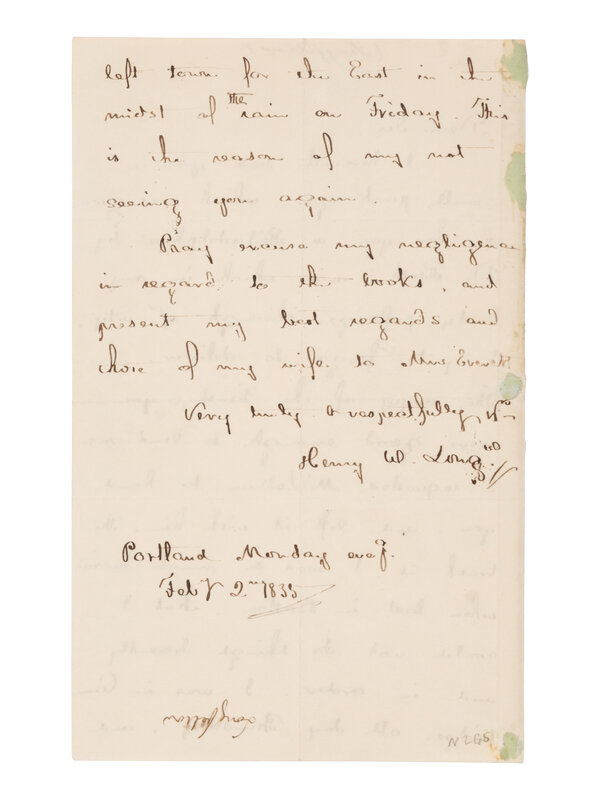 left town for the East in the
midst of the rain on Friday. This
is the reason of my not
seeing you again.
Pray excuse my negligence
in regard to the books, and
present my best regards and
those of my wife to Mrs Everett
Very truly & respectfully Yrs
Henry W. Long
Portland Monday eveg.
Feby 2nd 1835
Longfellow
N 2GS